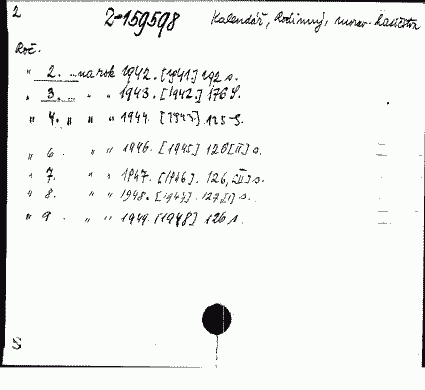 2 2-159598 Kalendář, Rodinný, morav.
Roč.
" 2. ... na rok 1942. [1941] 192 s.
" 3. ... " " 1943. [1942.] 176 S.
" 4. " " " 1944. [1943] 125 S.
" 6. " " 1946. [1945] 126 [II] s.
" 7. " " 1947. [1946]. 126, [II] s.
" 8. " " 1948. [1947]. 127, [I] s.
" 9. " " 1949. [1948] 126 s.
S